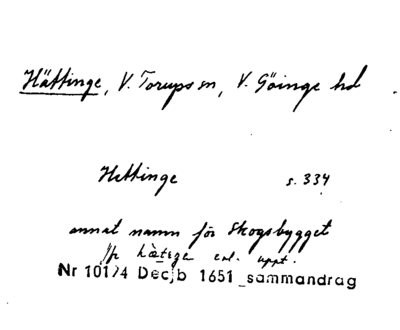 Hättinge, V. Torups sn, V. Göinge hd
Hettinge s. 334
annat namn för Skogsbygget
enl. uppt.
Nr 10174 Dec,b 1651 sammandrag